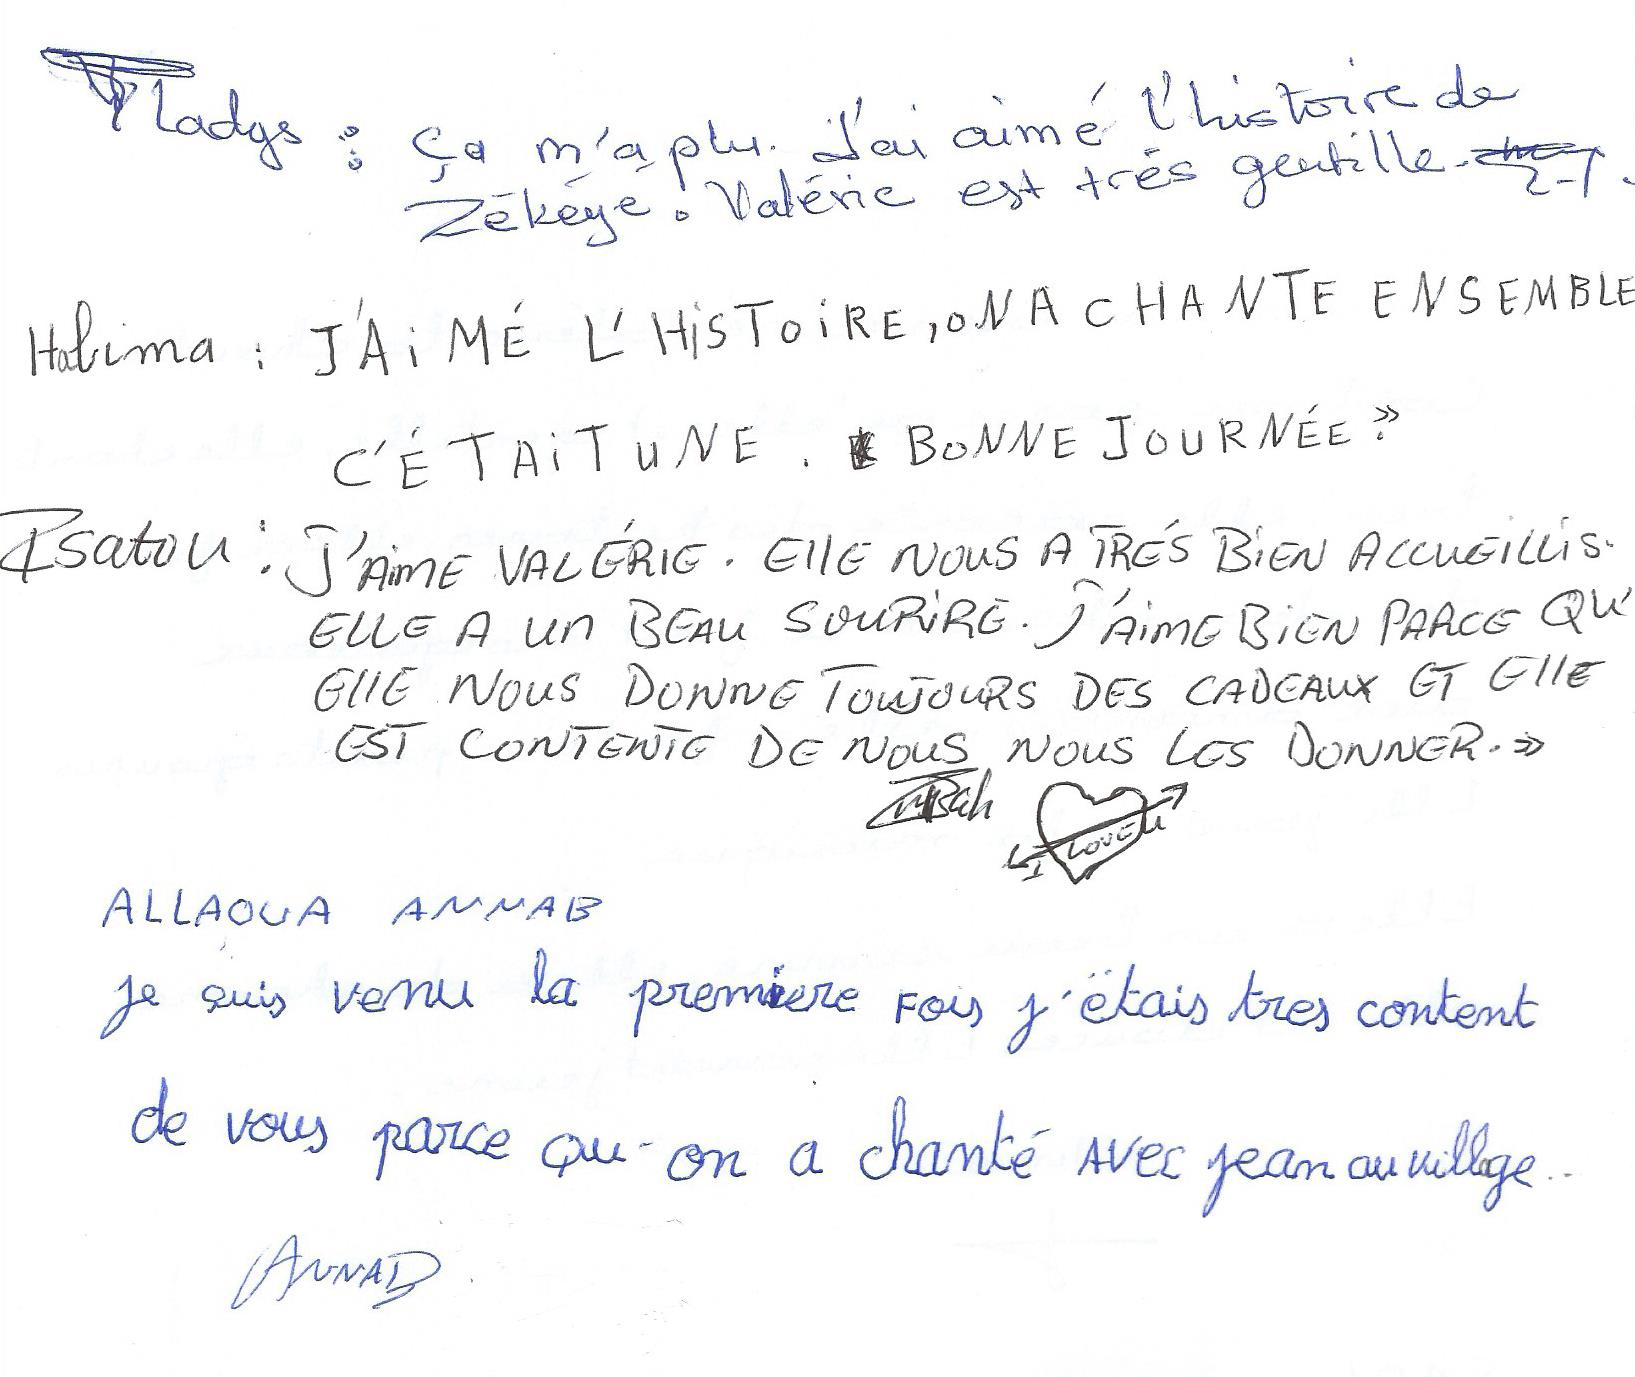 Vladys : ça m'a plu. J'ai aimé l'histoire de
Zékéyé. Valérie est très gentille.
Halima : J'AiMÉ L'HiSToiRE, oN A CHANTE ENSEMBLE
C'ÉTAiT UNE. BoNNE JOURNÉE ? »
Isatou : J'AiME VALÉRIE. EllE NOUS A TRÉS BiEN ACCUEiLLiS.
ELLE A Un BEAU SOURiRE. J'AiME BiEN PARCE QU'
EllE NOUS DONNE TOUJOURS DES CADEAUX ET EllE
EST CONTENTE DE NOUS NOUS LES DONNER. »
Bah I LOVE U
ALLAOUA ANNAB
je suis venu la premiere Fois j'étais tres content
de vous parce qu'on a chanté AVEC jean au village..
ANNAB